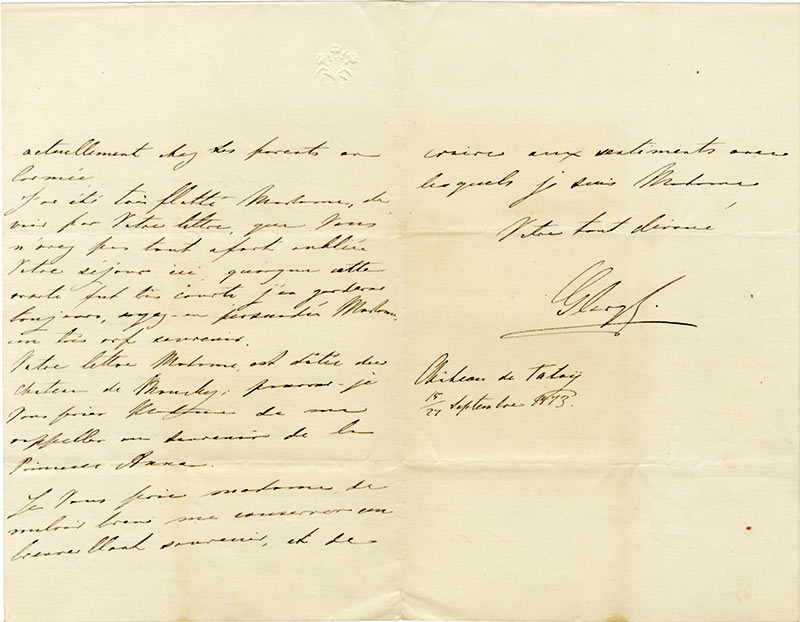 actuellement chez ses parents en
Cormée,
J'ai été très flatté Madame, de
voir par Votre lettre, que Vous
n'avez pas tout a fait oublié
Votre séjour ici, quoique cette
visite fut très courte j'en garderai
toujours, soyez-en persuadée Madame,
un très vif souvenir.
Votre lettre Madame, est datée du
chateau de Mouchy; pourrai-je
Vous prier Madame de me
rappeller au souvenir de la
Princesse Anna.
Je Vous prie madame de
vouloir bien me conserver un
bienveillant souvenir, et de
croire aux sentiments avec
lesquels je suis Madame
Votre tout dévoué
Château de Tatoÿ
15/27 Septembre 1873.